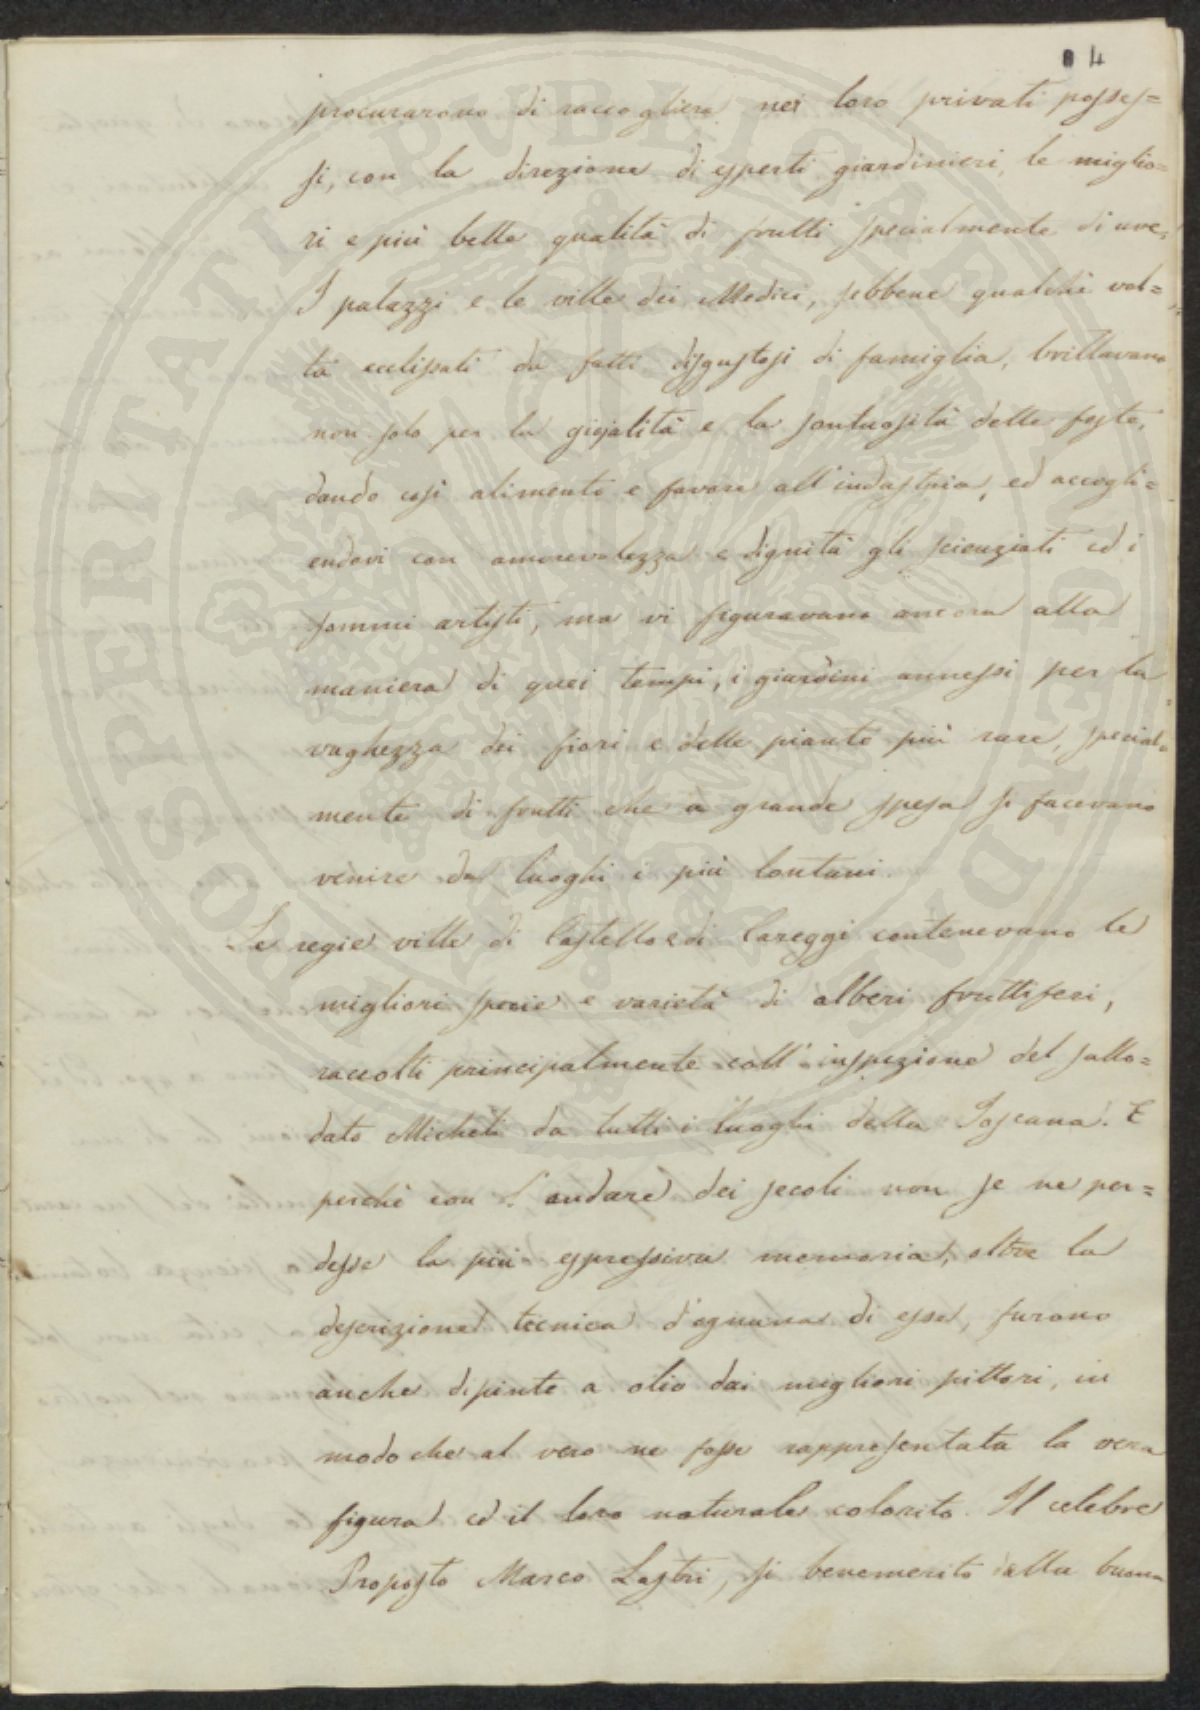 4
procurarono di raccogliere nei loro privati posses=
si, con la direzione di esperti giardinieri, le miglio=
ri e più belle qualità di frutti specialmente di uve.
I palazzi e le ville dei Medici, sebbene qualche vol=
ta ecclissati da fatti disgustosi di famiglia, brillavano
non solo per la giojalità e la sontuosità delle feste,
dando così alimento e favore all'industria, ed accogli=
endovi con amorevolezza e dignità gli scienziati ed i
sommi artisti, ma vi figuravano ancora alla
maniera di quei tempi, i giardini annessi per la
vaghezza dei fiori e delle piante più rare, special=
mente di frutti che a grande spesa si facevano
venire da luoghi i più lontani.
Le regie ville di Castello e di Careggi contenevano le
migliori specie e varietà di alberi fruttiferi,
raccolti principalmente coll'inspezione del sullo=
dato Micheli da tutti i luoghi della Toscana. E
perchè con l'andare dei secoli non se ne per=
desse la più espressiva memoria, oltre la
descrizione tecnica d'ognuna di esse, furono
anche dipinte a olio dai migliori pittori, in
modo che al vero ne fosse rappresentata la vera
figura ed il loro naturale colorito. Il celebre
Proposto Marco Lastri, sì benemerito della buona
PROSPERITATI PUBLICAE AUGENDAE